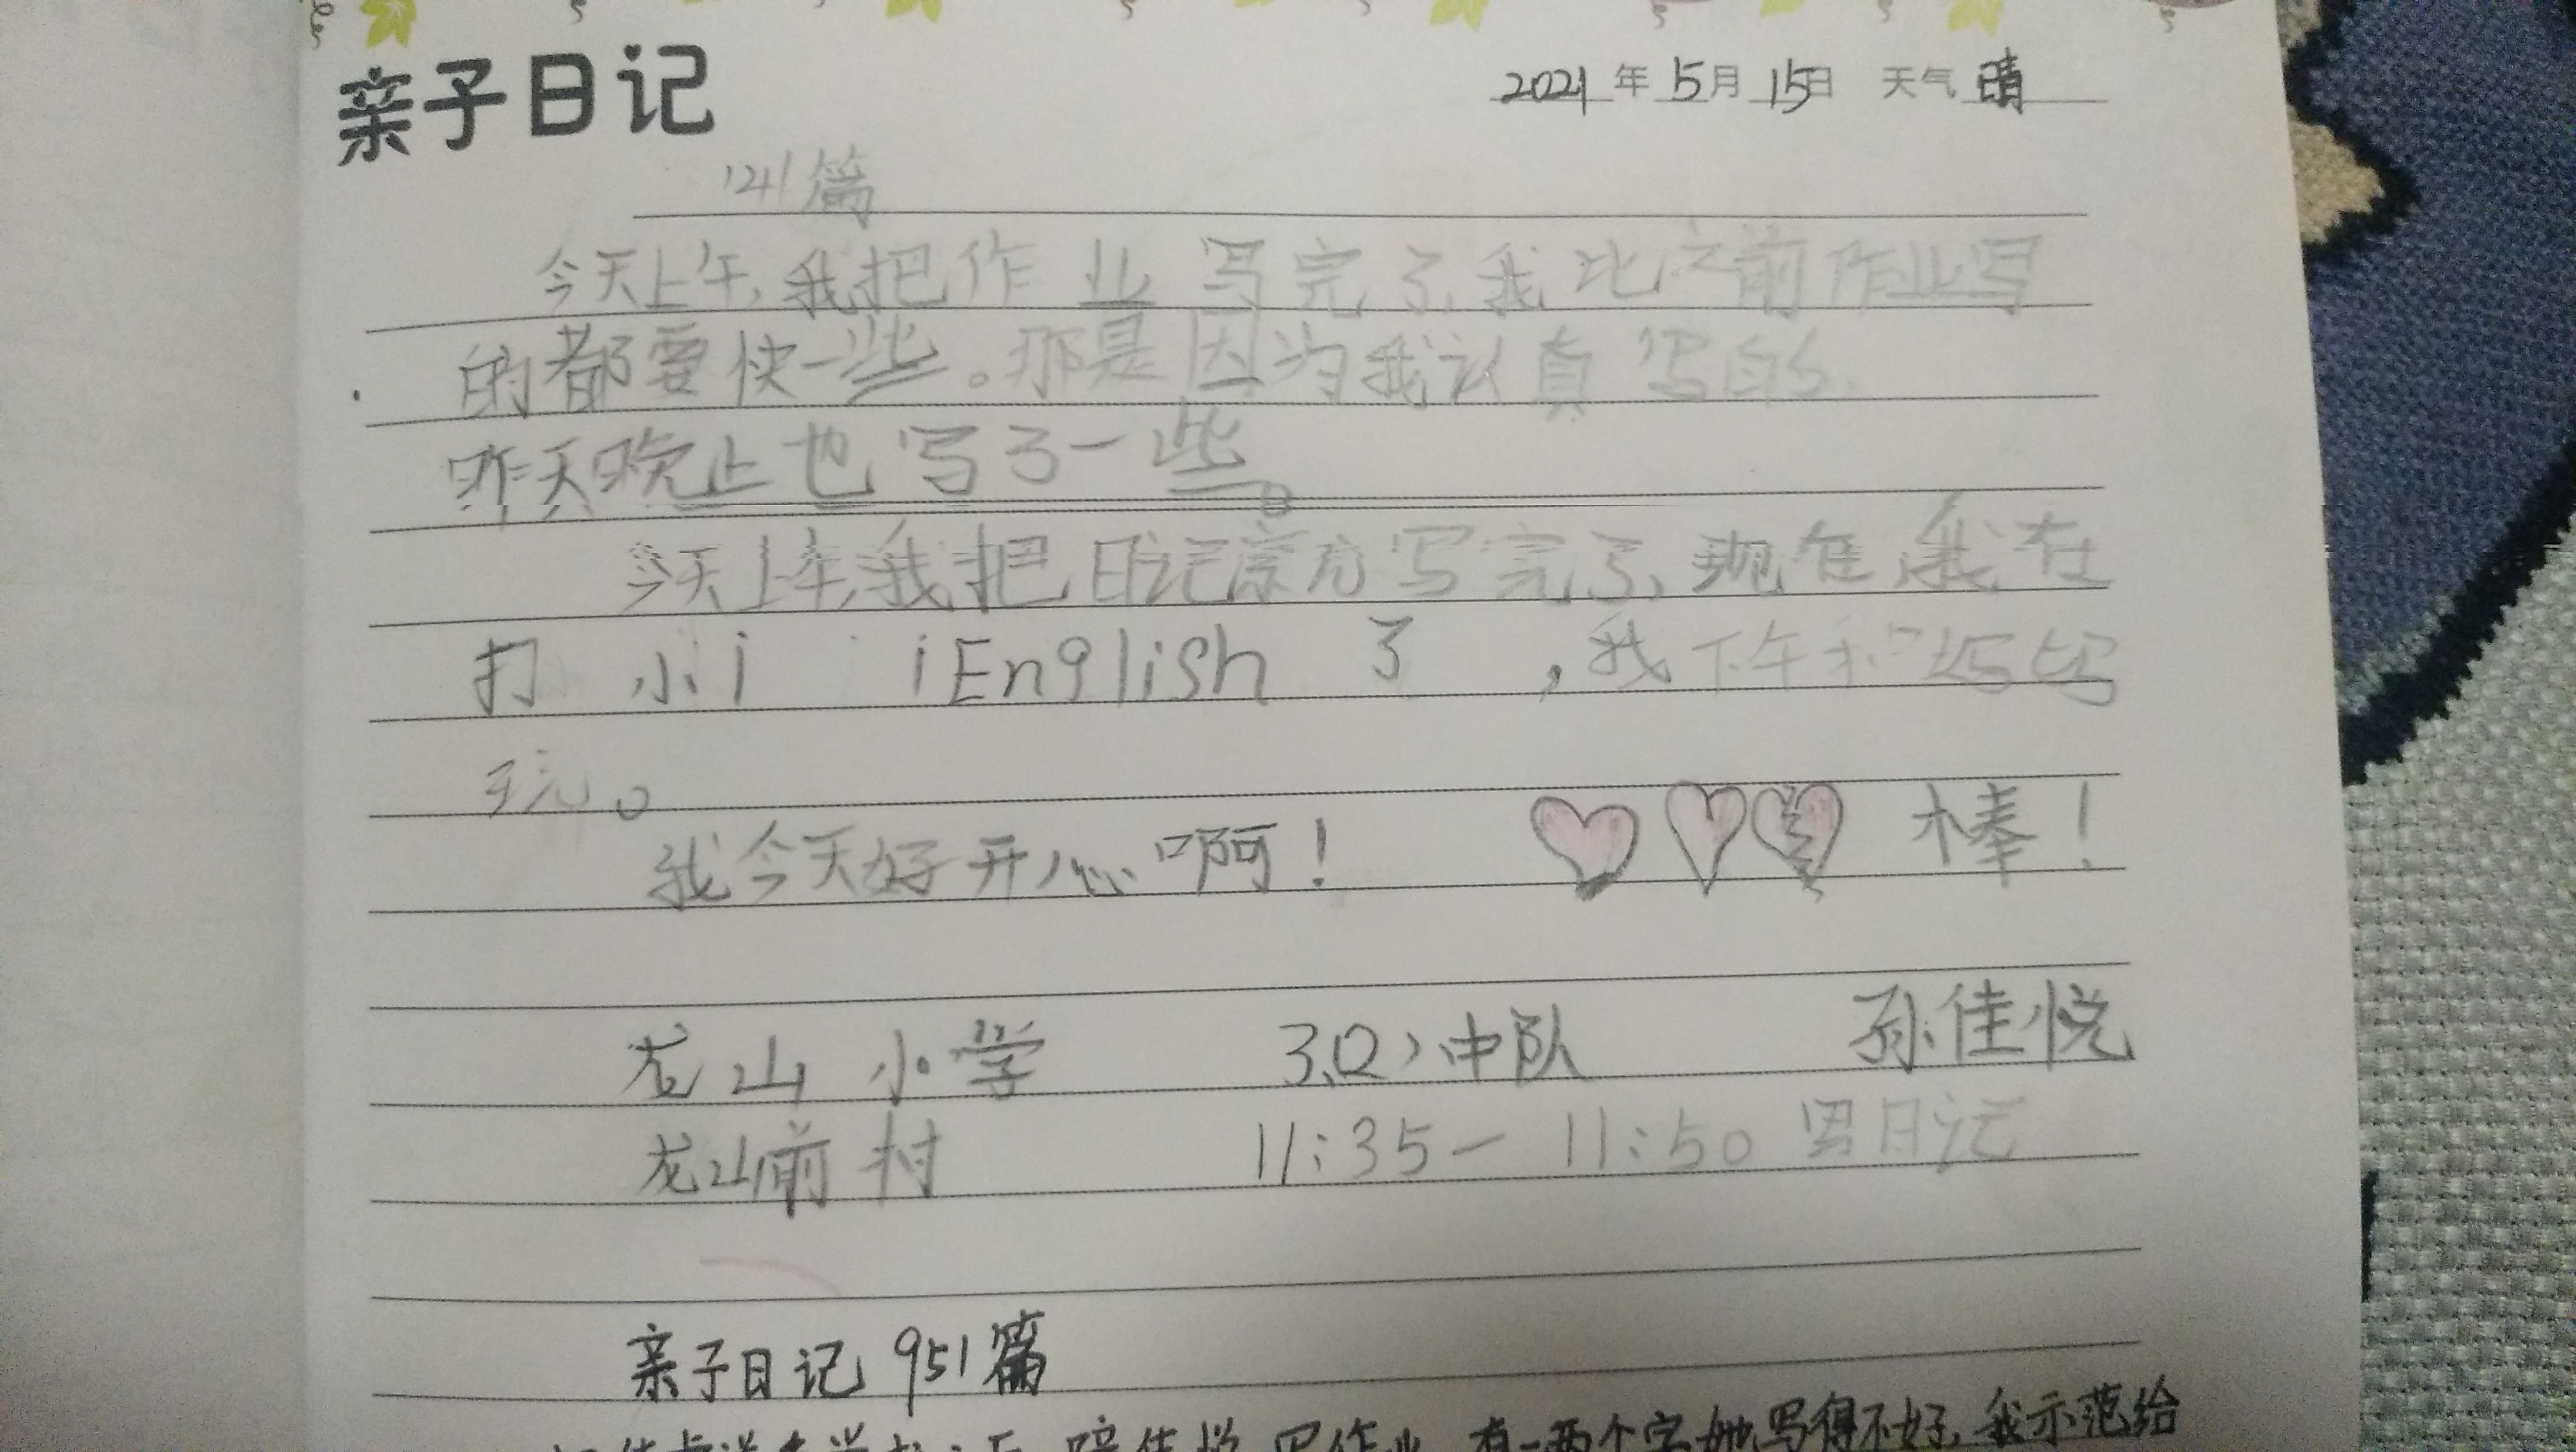 亲子日记
2021年5月15日 天气晴
121篇
今天上午,我把作业写完了,我比之前作业写
的都要快一些。那是因为我认真写的,
昨天晚上也写了一些。
今天上午,我把日记写完了,现在我在
打小i iEnglish了,我下午和妈妈
玩。
我今天好开心啊! 棒!
龙山小学 3(2)中队 孙佳悦
龙山前村 11:35— 11:50 写日记
亲子日记 951篇
陪佳悦写作业,有一两个字她写得不好,我示范给